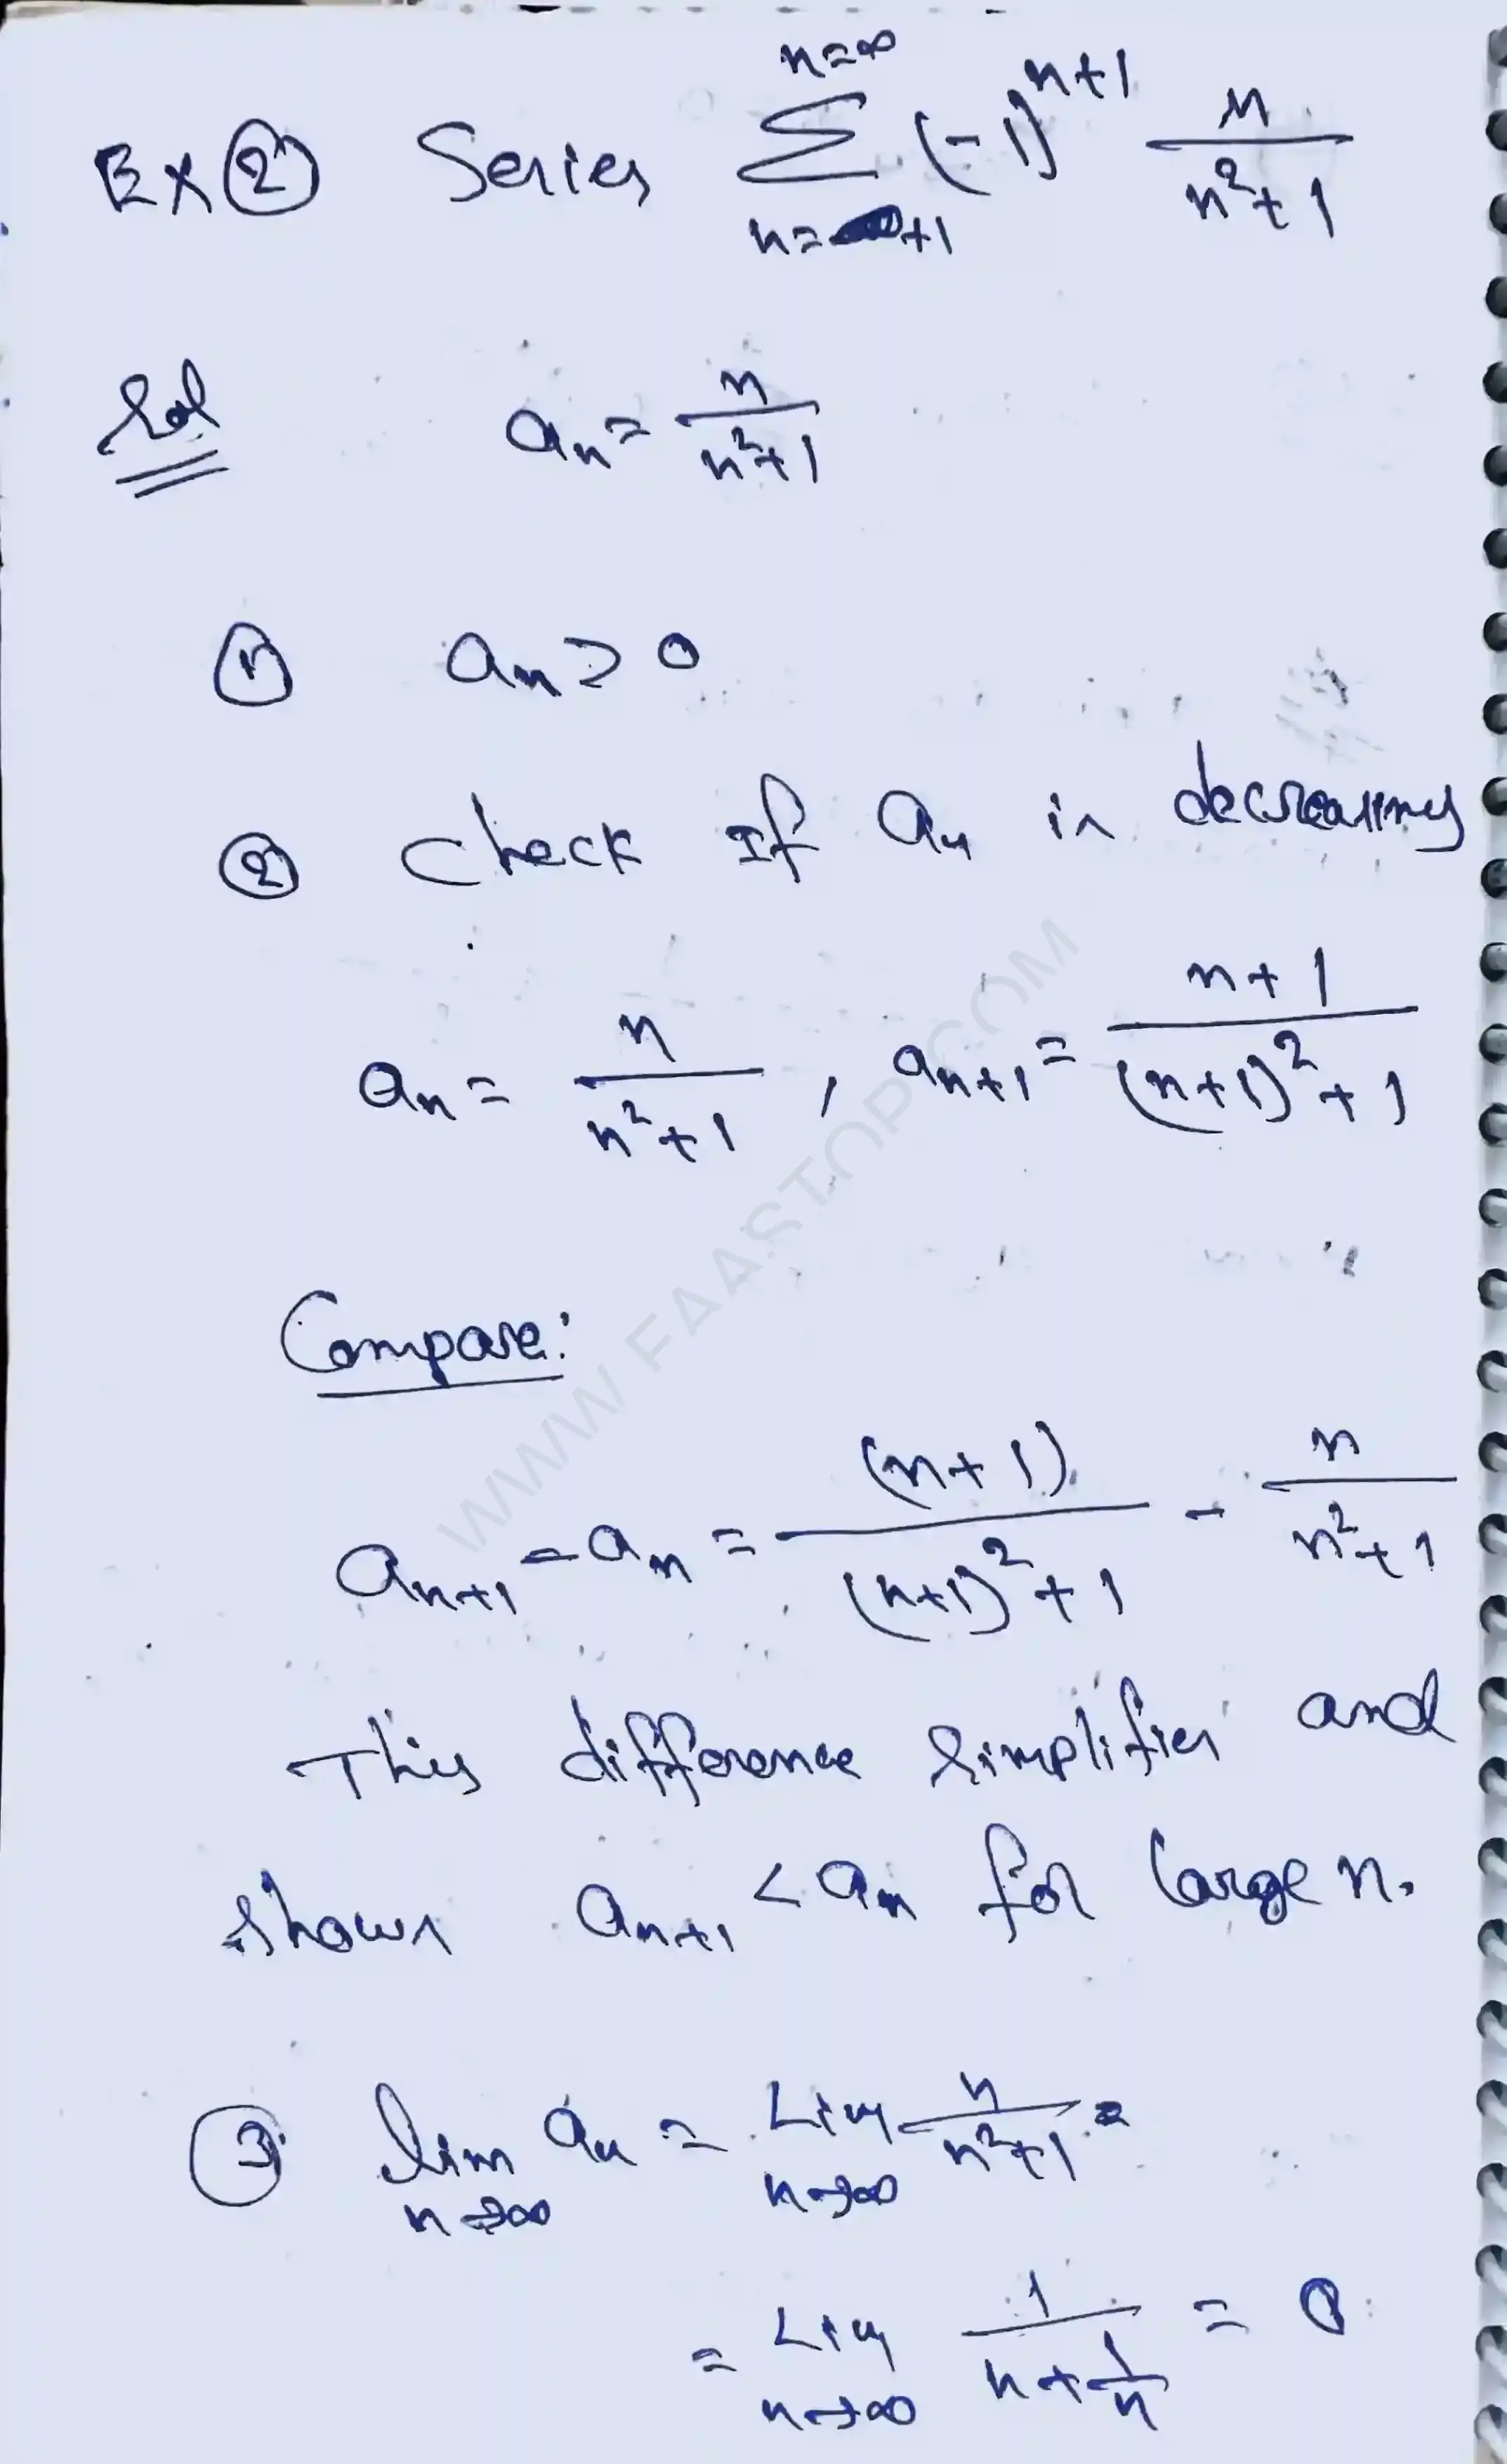 n=∞
Ex ② Series Σ (-1)^{n+1} n/(n²+1)
n=+1
Sol a_n = n/(n²+1)
① a_n > 0
② Check If a_n is decreasing
a_n = n/(n²+1) , a_{n+1} = (n+1)/((n+1)²+1)
Compare:
a_{n+1} - a_n = (n+1)/((n+1)²+1) - n/(n²+1)
This difference simplifies and
shows a_{n+1} < a_n for large n.
③ lim n→∞ a_n = Lim n→∞ n/(n²+1) =
= Lim n→∞ 1/(n+1/n) = 0
WWW.FAASTOP.COM